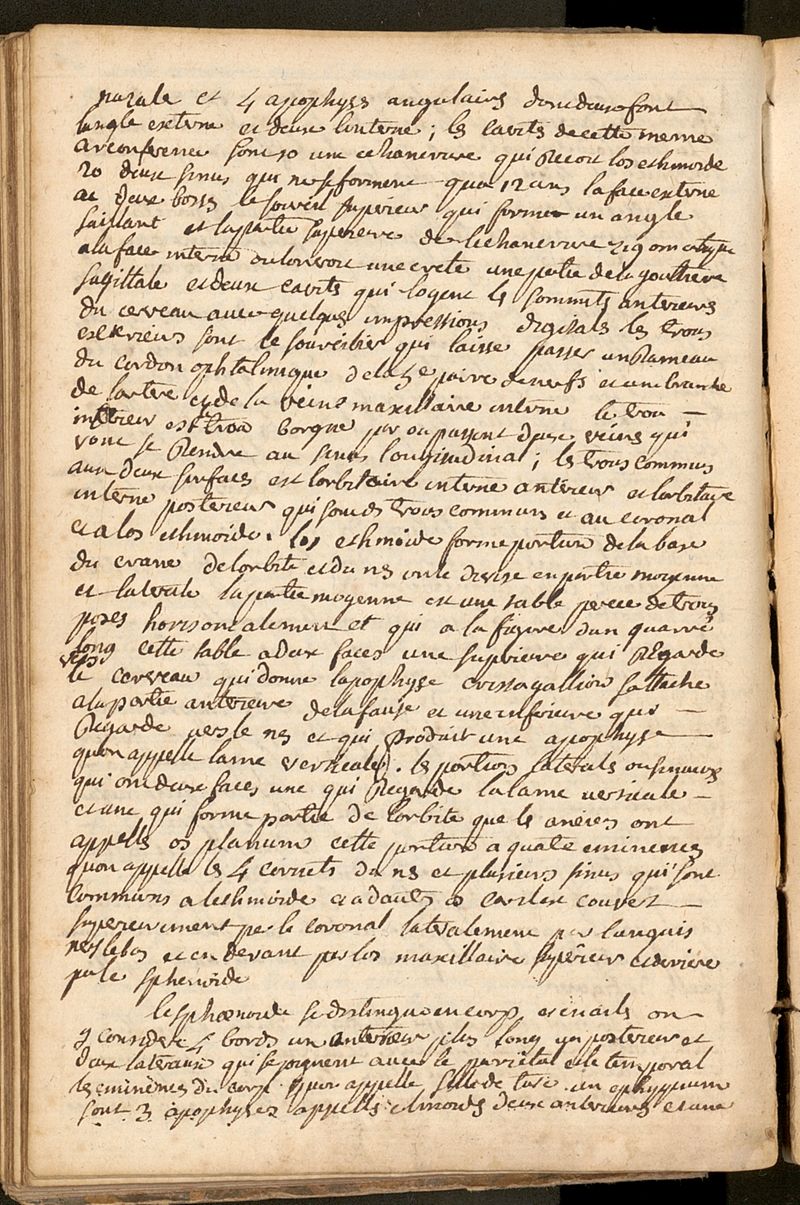 nazale et 4 apophyses angulaires dont deux font
langle externe et deux linterne ; les cavites de cette meme
circonference sont 1o une echancrure qui Recoit los ethmoide
2o deux sinus qui ne se forment qua 12 ans la face externe
a deux bosses le sourcil superieur qui forme un angle
saillant et la partie superieure de lechancrure zigomatique
a la face interne ou lon voit une crete une partie de la gouttiere
sagittale et deux cavites qui logent les sommets anterieurs
du cerveau avec quelques impressions digitales les trous
exterieurs sont le sourcilier qui laisse passer un Rameau
du cordon ophtalmique de la 5e paire de nerfs et une branche
de lartere et de la veine maxillaire interne le trou
interieur est trou borgne par ou passent deux veines qui
vont se Rendre au sinus longitudinal ; les trous communs
aux deux surfaces est lorbitaire interne anterieur et lorbitaire
interne posterieur qui sont des trous communs et au coronal
et a los ethmoide. los ethmoide forme portion de la base
du crane de lorbite et du nes on le divise en partie moyenne
et laterale la partie moyenne est une table percee de trous
poses horisontalement et qui a la figure dun quarré
long cette table a deux faces une superieure qui Regarde
vers le cerveau qui donne lapophyse crista galli ou sattache
a la partie anterieure de la faux et une inferieure qui
Regarde vers le nes et qui produit une apophyse
quon appelle lame verticale). les portions laterales ou sinueuses
qui ont deux faces une qui Regarde la lame verticale
et une qui forme partie de lorbite que les anciens ont
appelles os planum cette portion a quatre eminences
quon appelle les 4 cornets du nes et plusieurs sinus qui sont
communs a lethmoide et a dautres os cet os est couvert
superieurement par le coronal lateralement par languis
vers le bas et en devant par los maxillaire superieur et deriere
par le sphenoide
le sphœnoide se distingue en corps et en ailes on
y considere 4 bords un anterieur plus long un posterieur et
deux lateraux qui se joignent avec le pariétal et le temporal
les eminences du corps quon appelle selle de turc un ephyppium
sont 3 apophyses appelles clinoides deux anterieures et une